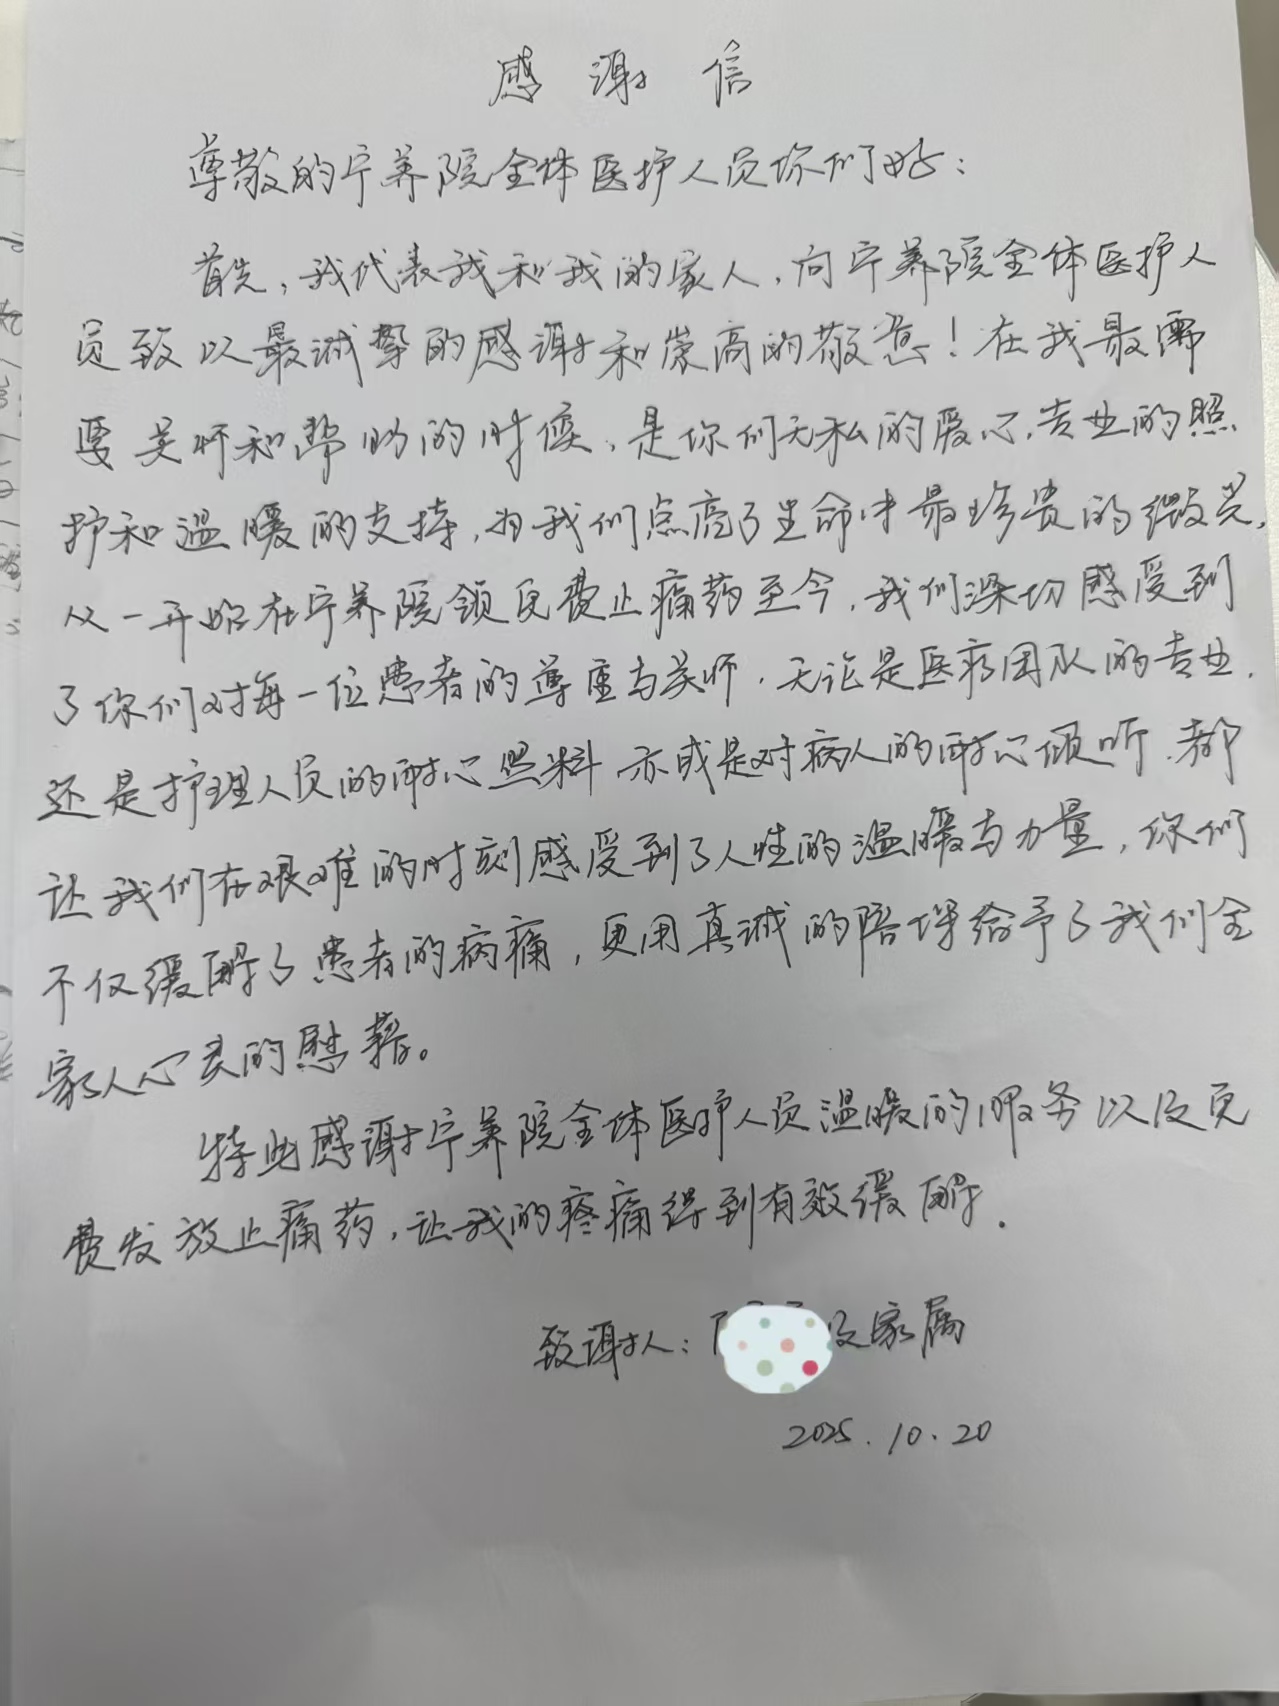 感谢信
尊敬的宁养院全体医护人员你们好：
首先，我代表我和我的家人，向宁养院全体医护人
员致以最诚挚的感谢和崇高的敬意！在我最需
要关怀和帮助的时候，是你们无私的爱心，专业的照
护和温暖的支持，为我们点亮了生命中最珍贵的微光，
从一开始在宁养院领免费止痛药至今，我们深切感受到
了你们对每一位患者的尊重与关怀，无论是医疗团队的专业，
还是护理人员的耐心照料，亦或是对病人的耐心倾听，都
让我们在艰难的时刻感受到了人性的温暖与力量，你们
不仅缓解了患者的病痛，更用真诚的陪伴给予了我们全
家人心灵的慰藉。
特此感谢宁养院全体医护人员温暖的服务以及免
费发放止痛药，让我的疼痛得到有效缓解．
致谢人：及家属
2025.10.20